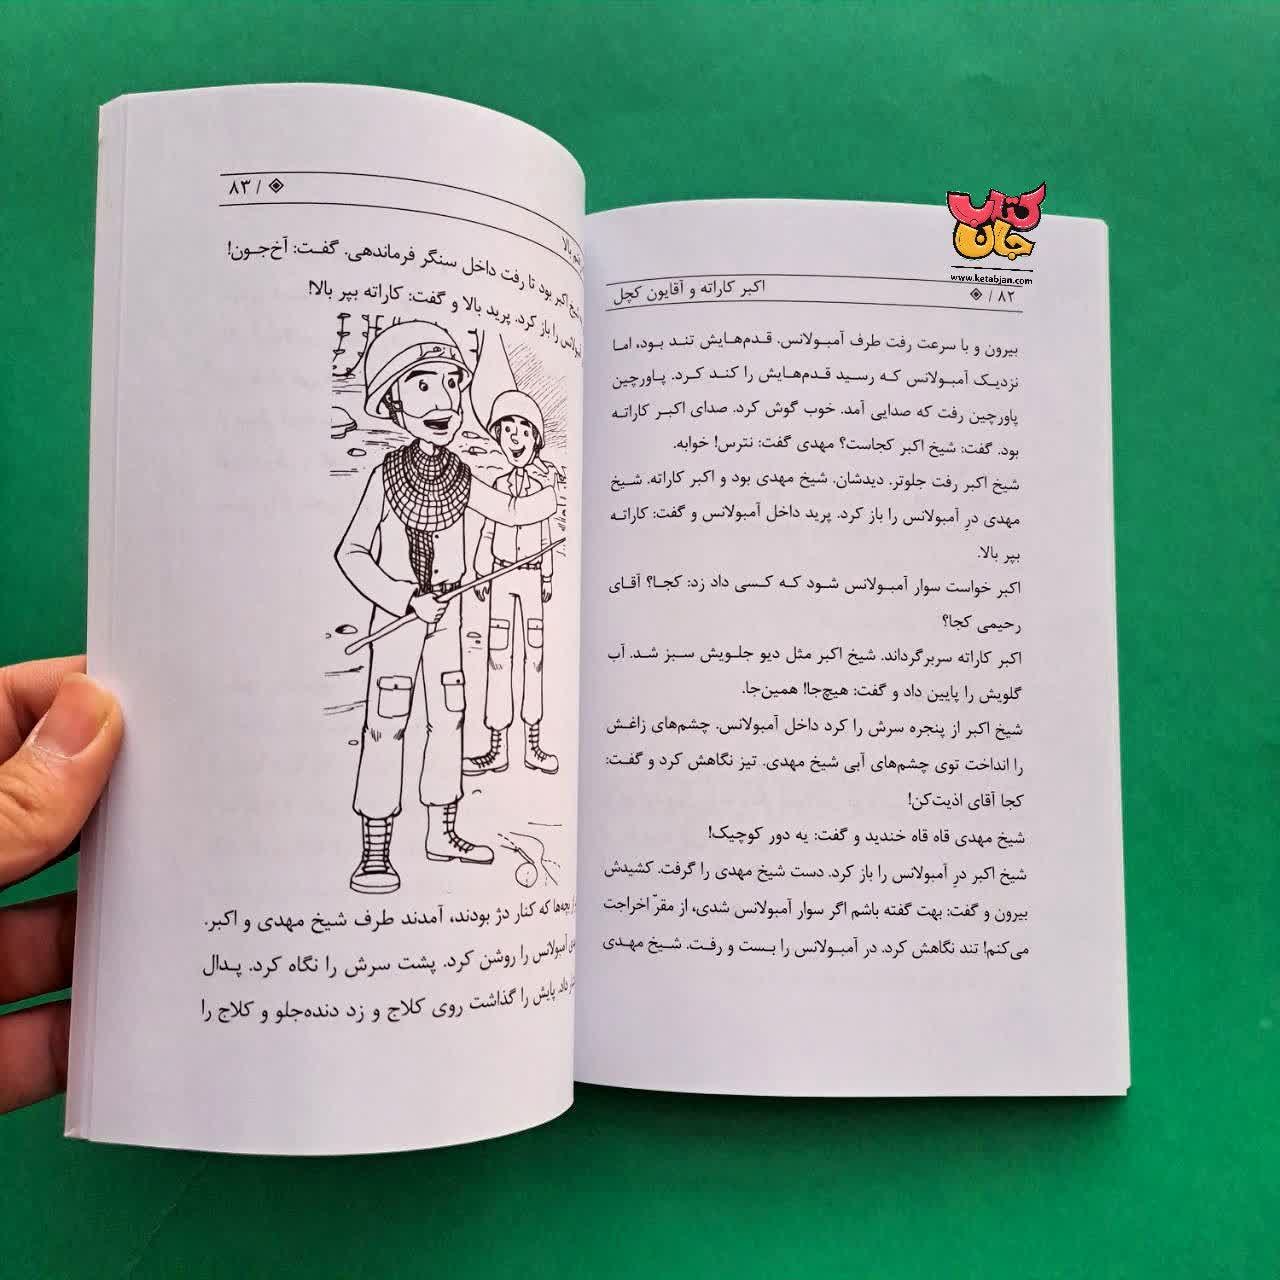 کتاب
جان
www.ketabjan.com
اکبر کاراته و آقایون کچل
۸۲ /
بیرون و با سرعت رفت طرف آمبولانس. قدم‌هایش تند بود، اما
نزدیک آمبولانس که رسید قدم‌هایش را کند کرد. پاورچین
پاورچین رفت که صدایی آمد. خوب گوش کرد. صدای اکبر کاراته
بود. گفت: شیخ اکبر کجاست؟ مهدی گفت: نترس! خوابه.
شیخ اکبر رفت جلوتر. دیدشان. شیخ مهدی بود و اکبر کاراته. شیخ
مهدی درِ آمبولانس را باز کرد. پرید داخل آمبولانس و گفت: کاراته
بپر بالا.
اکبر خواست سوار آمبولانس شود که کسی داد زد: کجا؟ آقای
رحیمی کجا؟
اکبر کاراته سربرگرداند. شیخ اکبر مثل دیو جلویش سبز شد. آب
گلویش را پایین داد و گفت: هیچ‌جا! همین‌جا.
شیخ اکبر از پنجره سرش را کرد داخل آمبولانس. چشم‌های زاغش
را انداخت توی چشم‌های آبی شیخ مهدی. تیز نگاهش کرد و گفت:
کجا آقای اذیت‌کن!
شیخ مهدی قاه قاه خندید و گفت: یه دور کوچیک!
شیخ اکبر درِ آمبولانس را باز کرد. دست شیخ مهدی را گرفت. کشیدش
بیرون و گفت: بهت گفته باشم اگر سوار آمبولانس شدی، از مقرّ اخراجت
می‌کنم! تند نگاهش کرد. در آمبولانس را بست و رفت. شیخ مهدی
۸۳ /
بالا
شیخ اکبر بود تا رفت داخل سنگر فرماندهی. گفت: آخ‌جون!
را باز کرد. پرید بالا و گفت: کاراته بپر بالا!
یا زهرا
بچه‌ها که کنار دژ بودند، آمدند طرف شیخ مهدی و اکبر.
آمبولانس را روشن کرد. پشت سرش را نگاه کرد. پدال
داد. پایش را گذاشت روی کلاج و زد دنده‌جلو و کلاج را